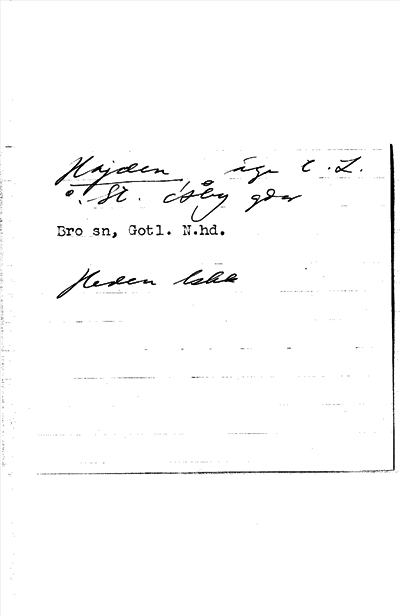 Hajden, äga t. L.
o. St. Åsby gdar
Bro sn, Gotl. N.hd.
Heden